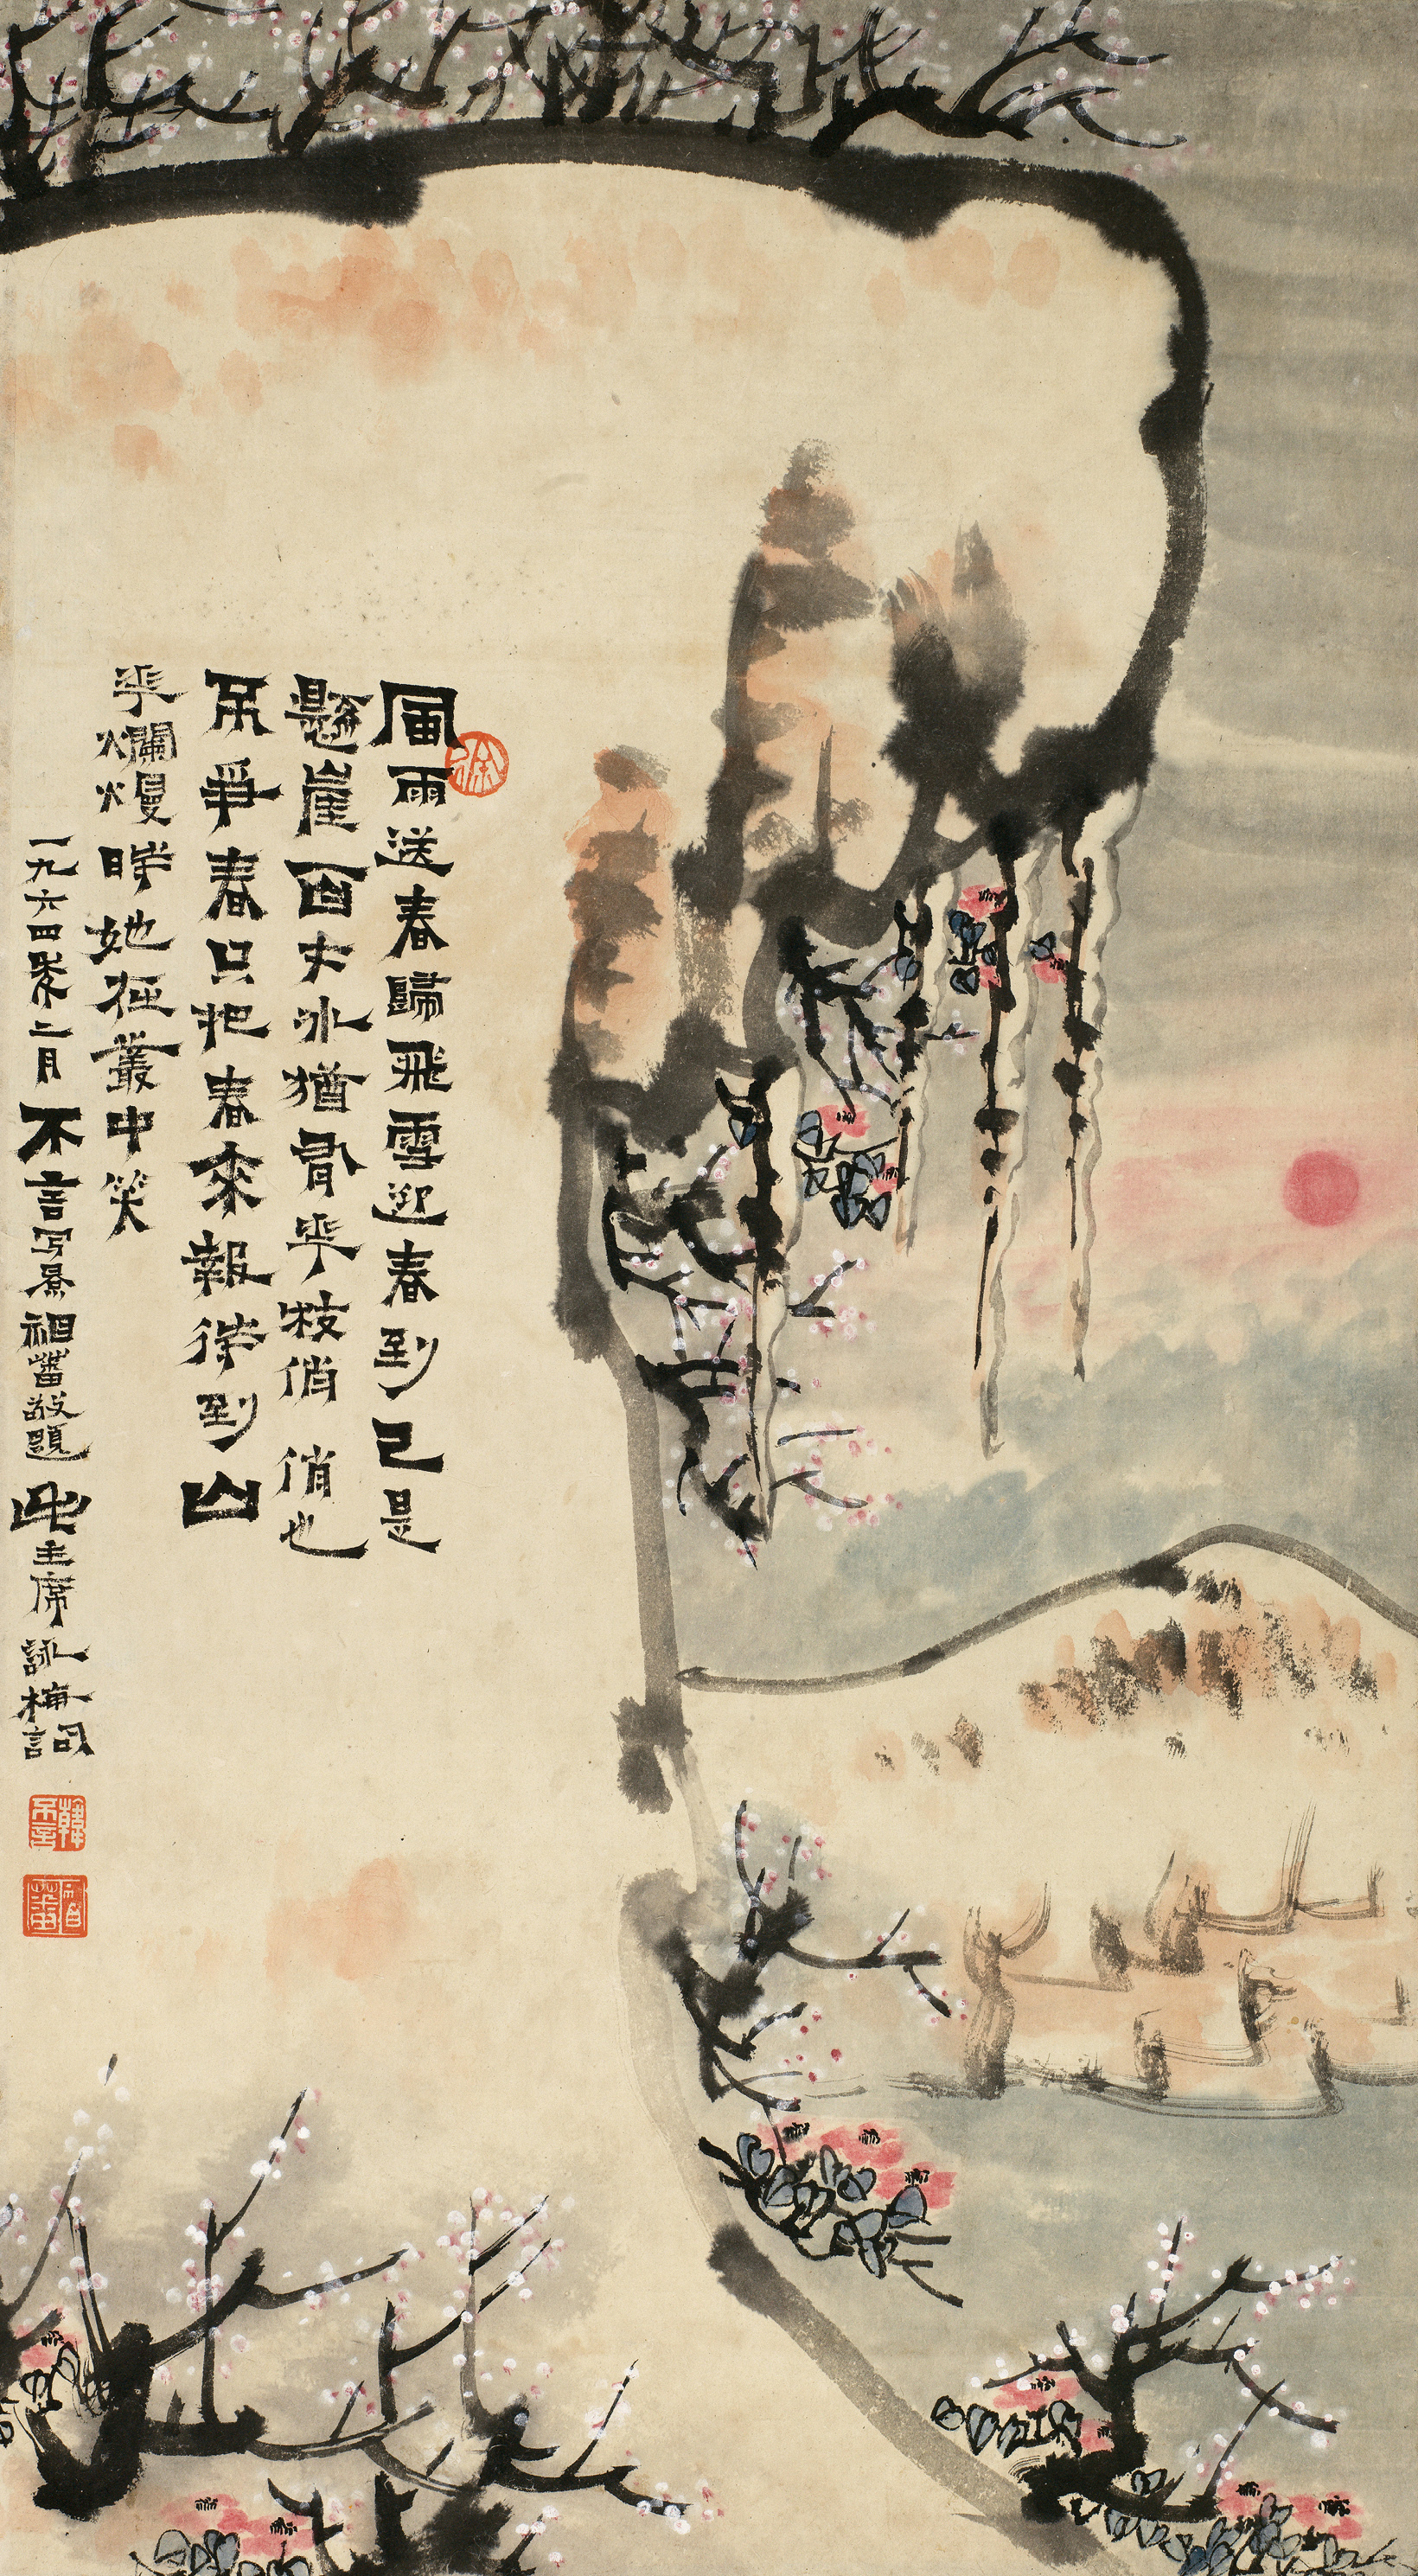 風雨送春歸飛雪迎春到已是
懸崖百丈冰猶有華枝俏俏也
不爭春只把春來報待到山
華爛熳時她在叢中笑
一九六四年二月不言写景祖蕃敬題毛主席詠梅詞
徐
韓不言
祖蕃